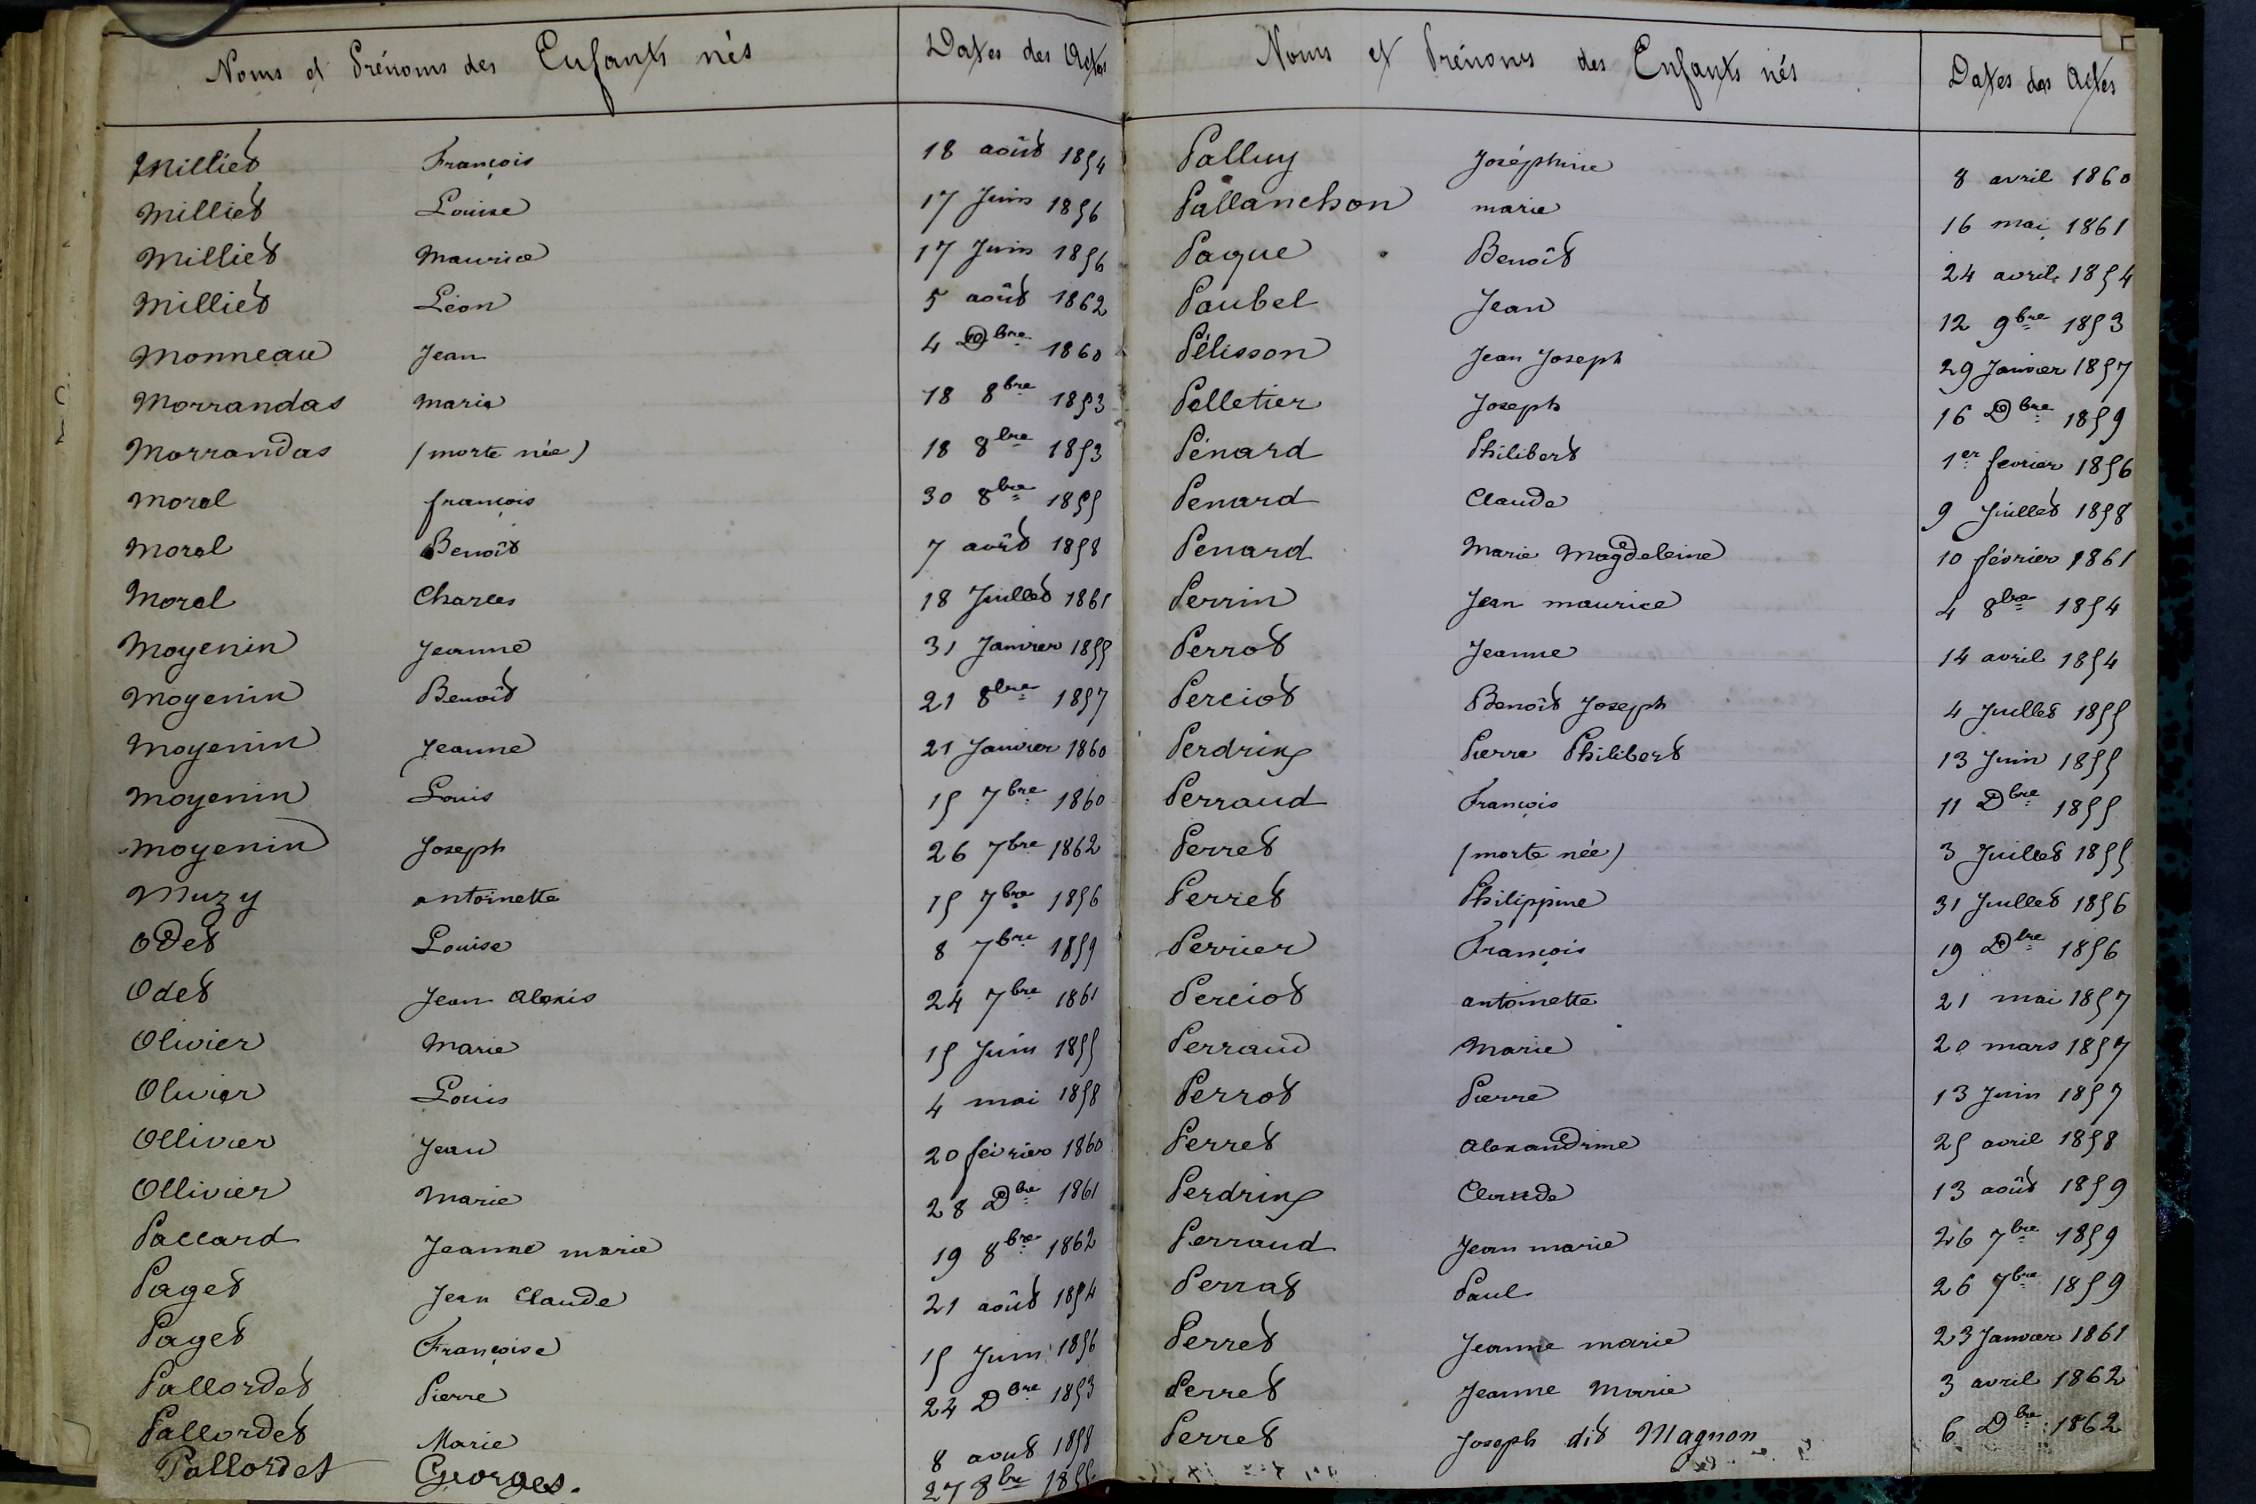 Noms et Prénoms des Enfants nés Dates des Actes
Milliet François 18 août 1854
Milliet Louise 17 Juin 1856
Milliet Maurice 17 Juin 1856
Milliet Léon 5 août 1862
Monneau Jean 4 Dbre 1860
Morrandas Marie 18 8bre 1853
Morrandas (morte née) 18 8bre 1853
Morel françois 30 8bre 1855
Morel Benoît 7 août 1858
Morel Charles 18 Juillet 1861
Moyenin Jeanne 31 Janvier 1855
Moyenin Benoît 21 8bre 1857
Moyenin Jeanne 21 Janvier 1860
Moyenin Louis 15 7bre 1860
Moyenin Joseph 26 7bre 1862
Muzy antoinette 15 7bre 1856
Odet Louise 8 7bre 1859
Odet Jean Alexis 24 7bre 1861
Olivier Marie 15 Juin 1855
Olivier Louis 4 mai 1858
Ollivier Jean 20 février 1860
Ollivier Marie 28 Dbre 1861
Paccard Jeanne marie 19 8bre 1862
Paget Jean Claude 21 août 1854
Paget Françoise 15 Juin 1856
Pallordet Pierre 24 Dbre 1853
Pallordet Marie 8 aout 1858
Pallordet Georges. 27 8bre
Noms et Prénoms des Enfants nés Dates des Actes
Palluy Joséphine 8 avril 1860
Pallanchon marie 16 mai 1861
Paque Benoît 24 avril 1854
Paubel Jean 12 9bre 1853
Pélisson Jean Joseph 29 Janvier 1857
Pelletier Joseph 16 Dbre 1859
Pénard Philibert 1er fevrier 1856
Penard Claude 9 Juillet 1858
Penard Marie Magdeleine 10 février 1861
Perrin Jean maurice 4 8bre 1854
Perrot Jeanne 14 avril 1854
Perciot Benoît Joseph 4 Juillet 1855
Perdrix Pierre Philibert 13 Juin 1855
Perraud François 11 Dbre 1855
Perret (morte née) 3 Juillet 1855
Perret Philippine 31 Juillet 1856
Perrier François 19 Dbre 1856
Perciot antoinette 21 mai 1857
Perraud Marie 20 mars 1857
Perrot Pierre 13 Juin 1857
Perret Alexandrine 25 avril 1858
Perdrix Claude 13 août 1859
Perraud Jean marie 26 7bre 1859
Perrat Paul 26 7bre 1859
Perret Jeanne marie 23 Janvier 1861
Perret Jeanne Marie 3 avril 1862
Perret Joseph dit Magnon 6 Dbre 1862